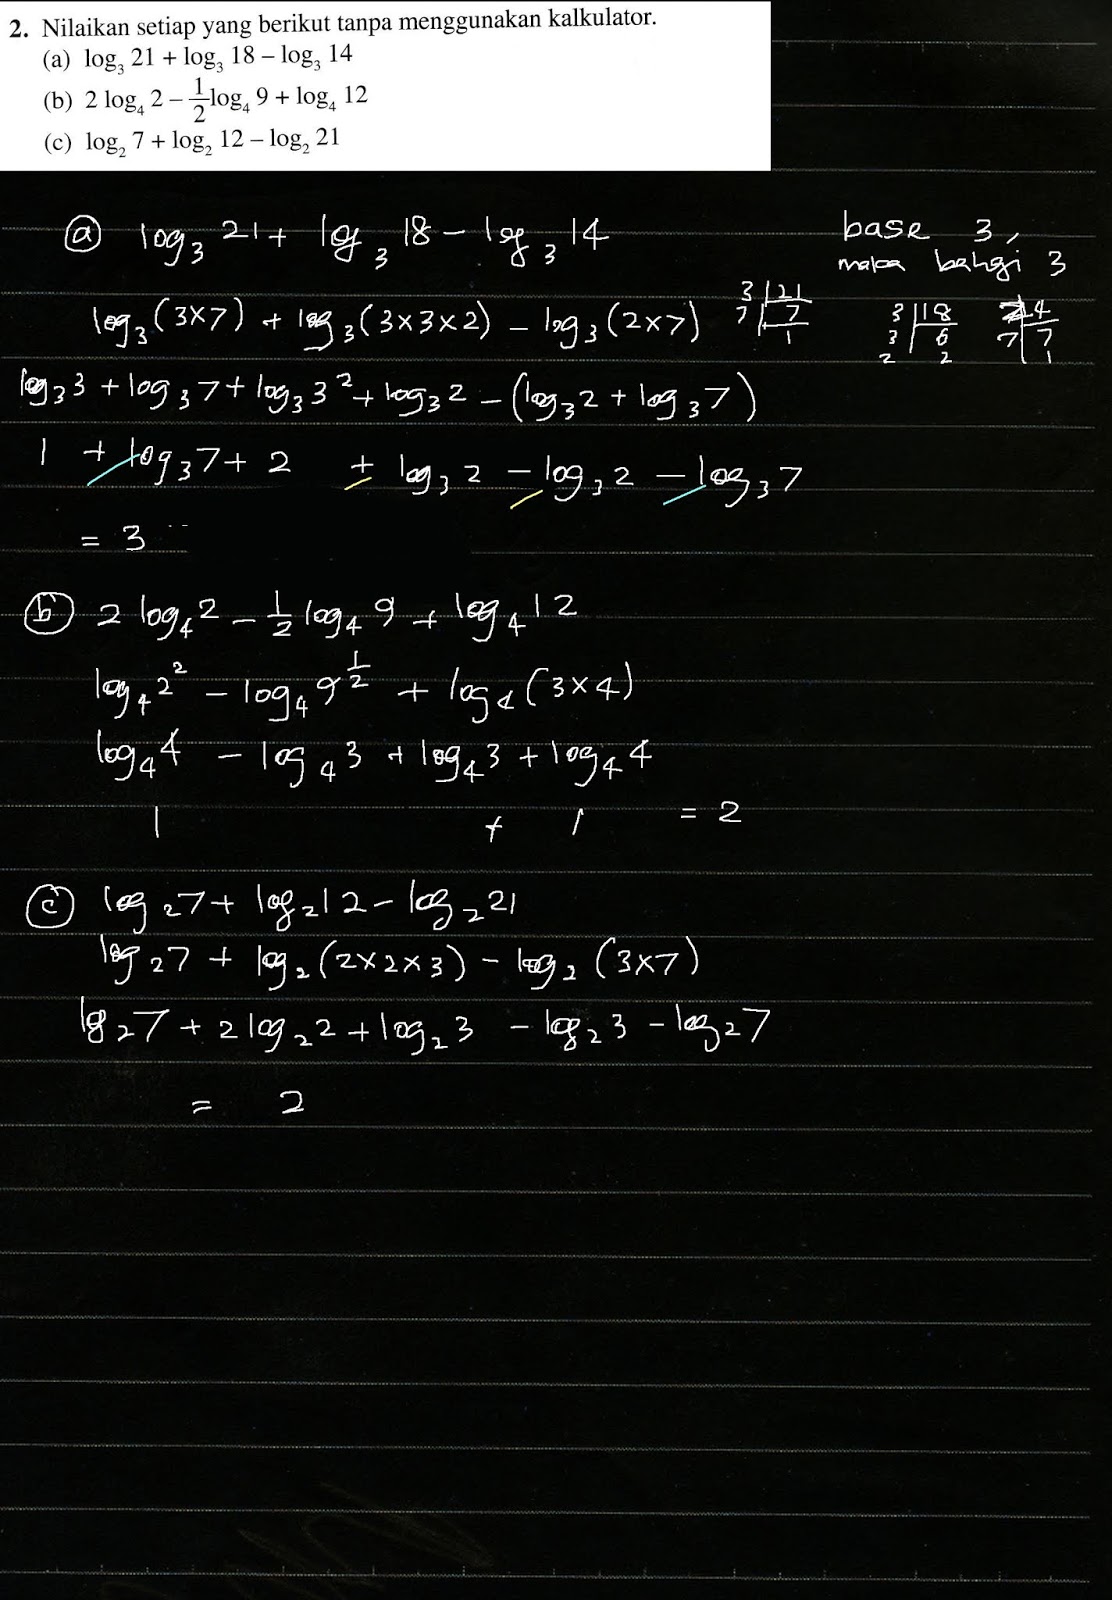 2. Nilaikan setiap yang berikut tanpa menggunakan kalkulator.
(a) log₃ 21 + log₃ 18 – log₃ 14
(b) 2 log₄ 2 – 1/2 log₄ 9 + log₄ 12
(c) log₂ 7 + log₂ 12 – log₂ 21
ⓐ log₃ 21 + log₃ 18 – log₃ 14
base 3,
maka bahgi 3
log₃ (3×7) + log₃ (3×3×2) – log₃ (2×7)
3 | 21
7 | 7
1
3 | 18
3 | 6
2 2
14
7 | 7
1
log₃ 3 + log₃ 7 + log₃ 3² + log₃ 2 – (log₃ 2 + log₃ 7)
1 + log₃ 7 + 2 + log₃ 2 – log₃ 2 – log₃ 7
= 3
ⓑ 2 log₄ 2 – 1/2 log₄ 9 + log₄ 12
log₄ 2² – log₄ 9^1/2 + log₄ (3×4)
log₄ 4 – log₄ 3 + log₄ 3 + log₄ 4
1 + 1 = 2
ⓒ log₂ 7 + log₂ 12 – log₂ 21
log₂ 7 + log₂ (2×2×3) – log₂ (3×7)
lg₂ 7 + 2 log₂ 2 + log₂ 3 – log₂ 3 – log₂ 7
= 2